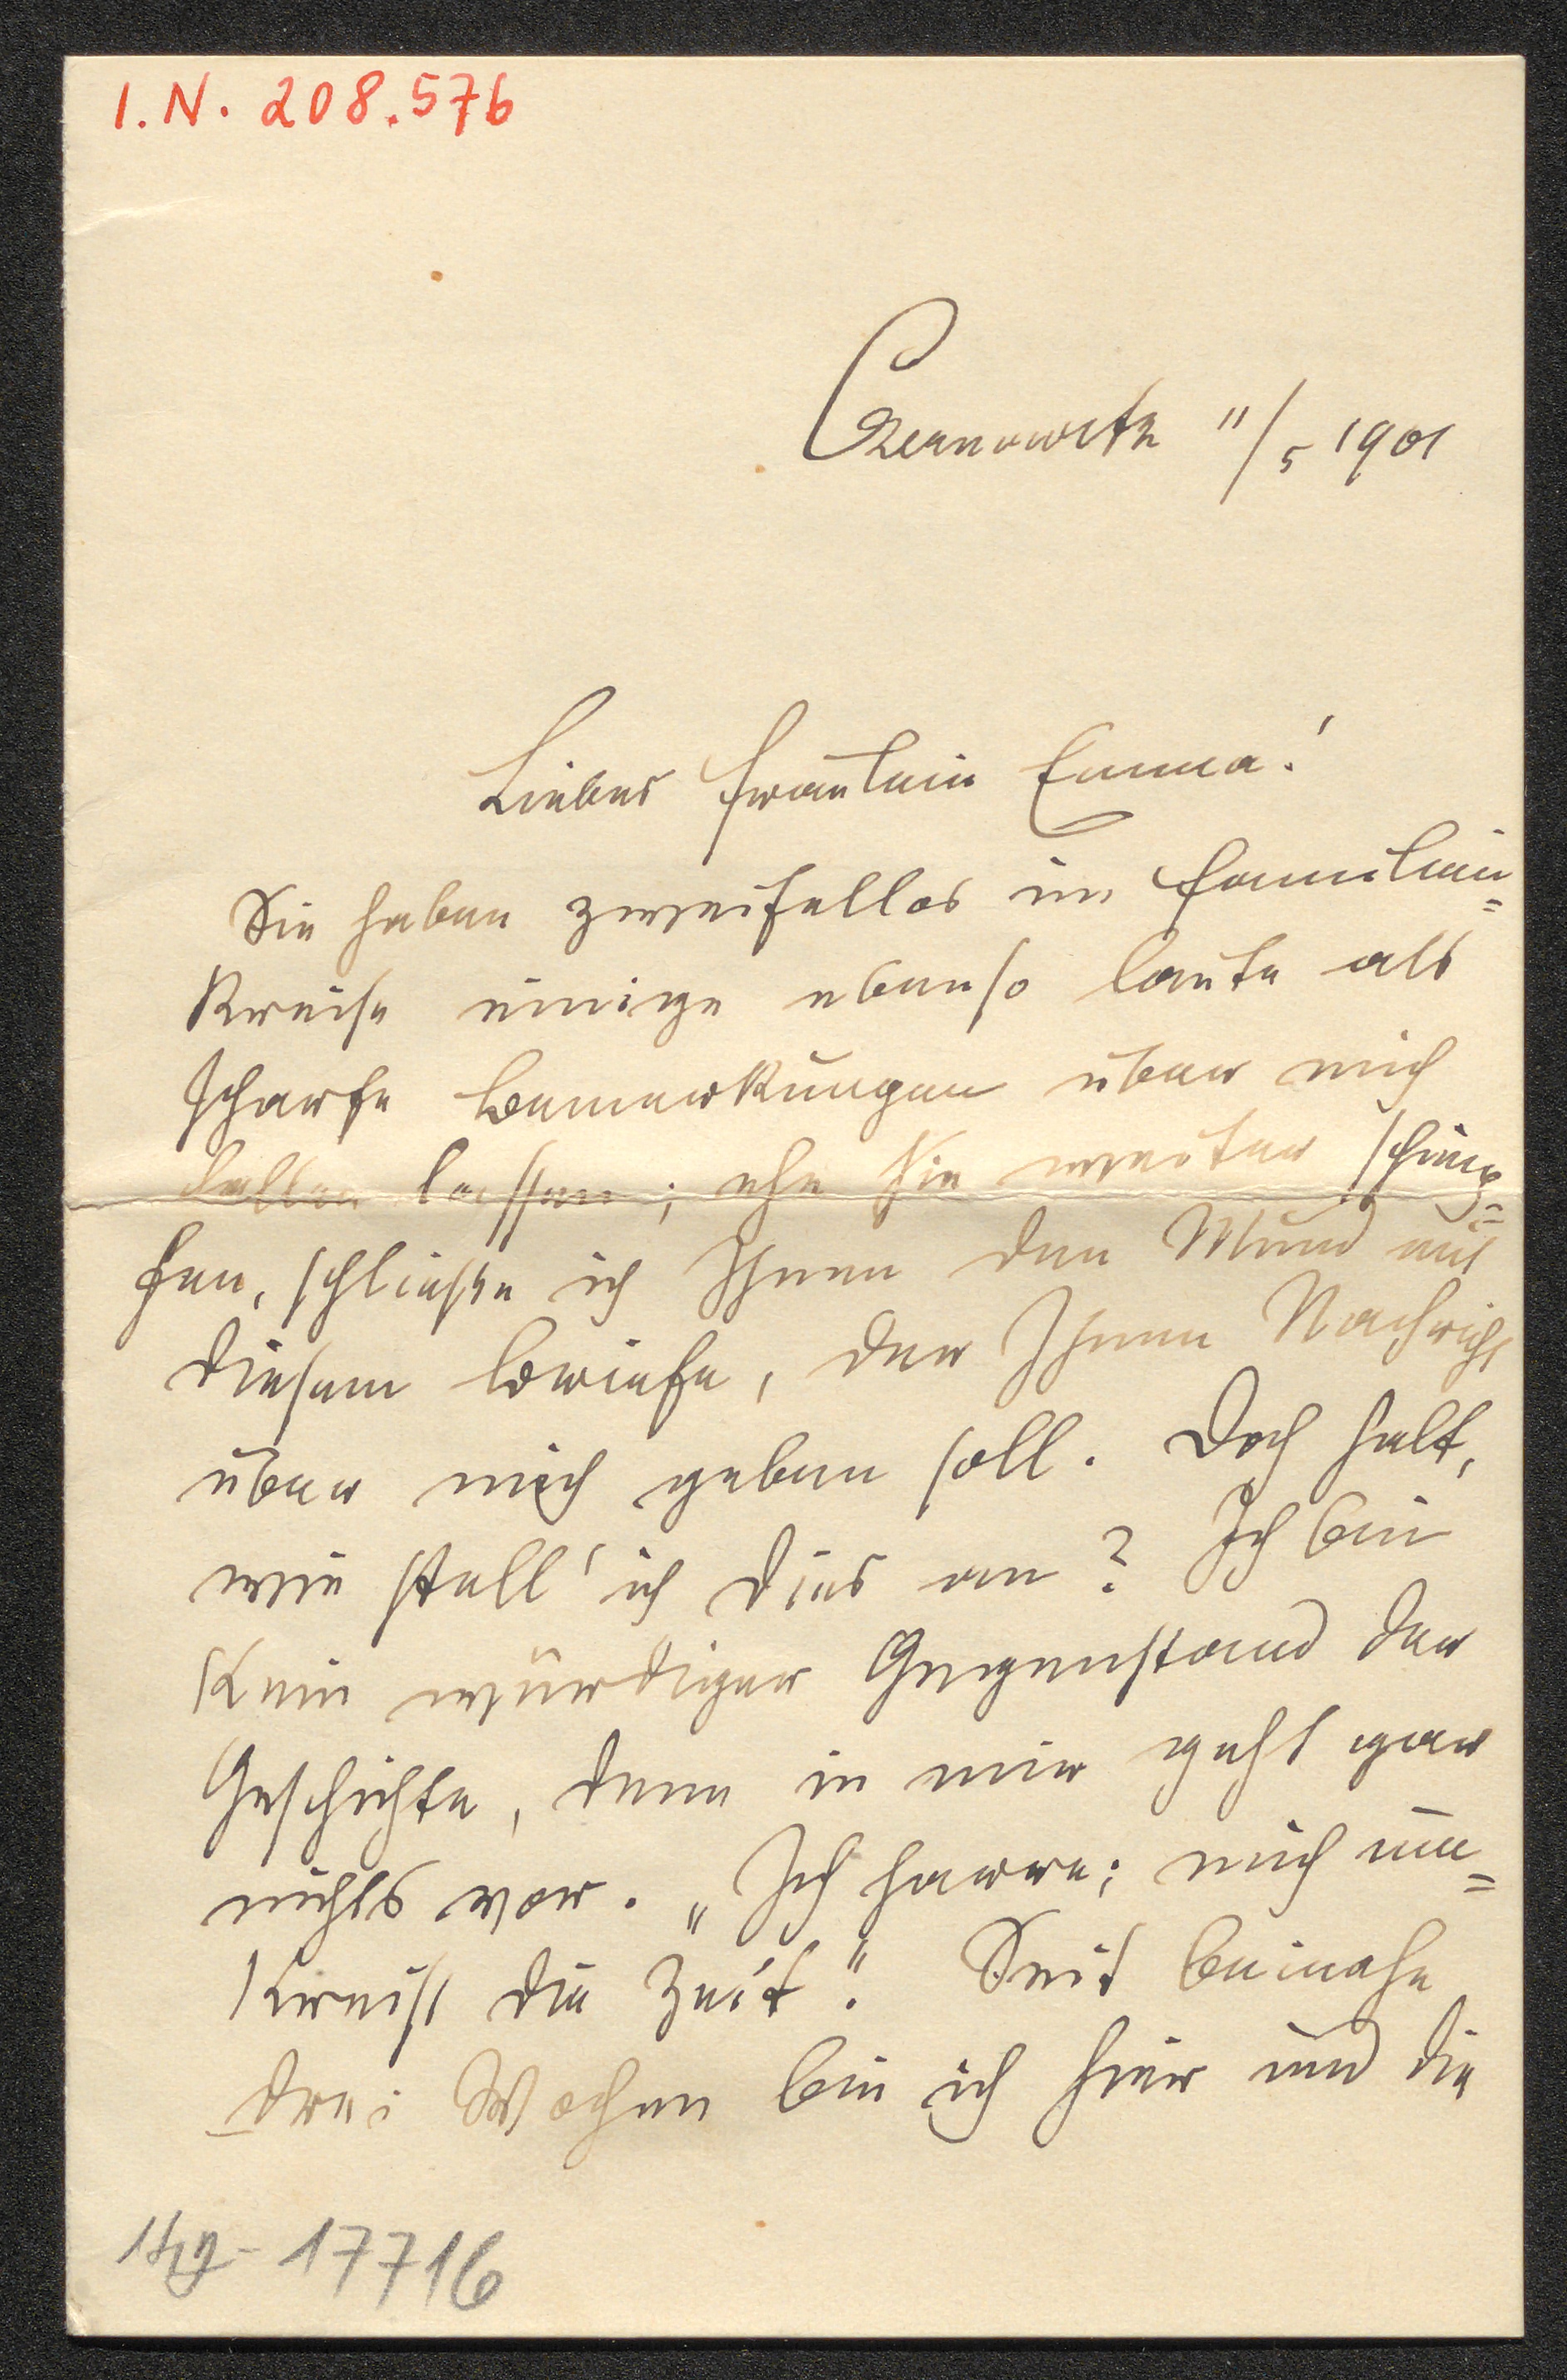 I.N. 208.576
Czernowitz 11/5 1901
Liebes Fräulein Emma!
Sie haben zweifellos im Familien=
kreise einige ebenso laute als
scharfe Bemerkungen über mich
fallen lassen; ehe Sie weiter schimp=
fen, schließe ich Ihnen den Mund mit
diesem Briefe, der Ihnen Nachricht
über mich geben soll. Doch halt,
wie stell' ich dies an? Ich bin
kein würdiger Gegenstand der
Geschichte, denn in mir geht gar
nichts vor. „Ich harre; mich um=
kreist die Zeit." Seit beinahe
drei Wochen bin ich hier und die
17716